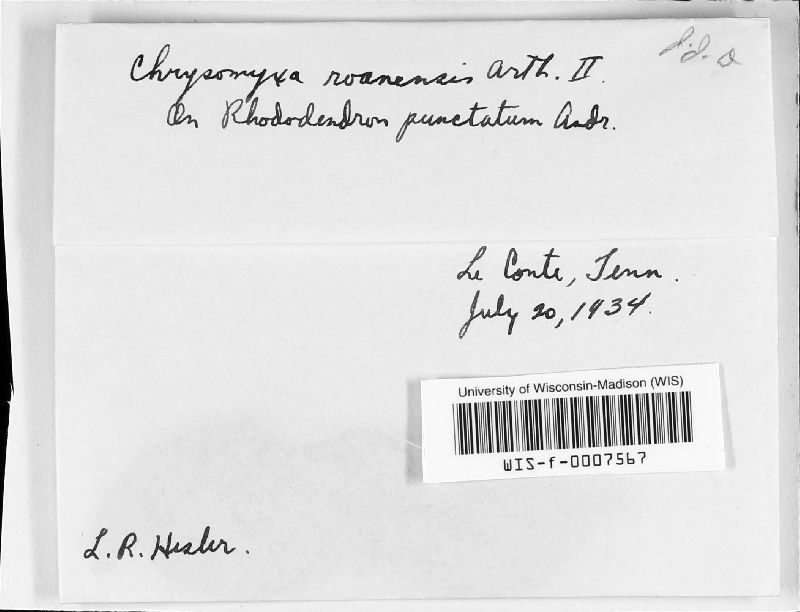 Chrysomyxa roanensis Arth. II.
On Rhododendron punctatum Andr.
Le Conte, Tenn.
July 20, 1934.
University of Wisconsin-Madison (WIS)
WIS-f-0007567
L. R. Hesler.